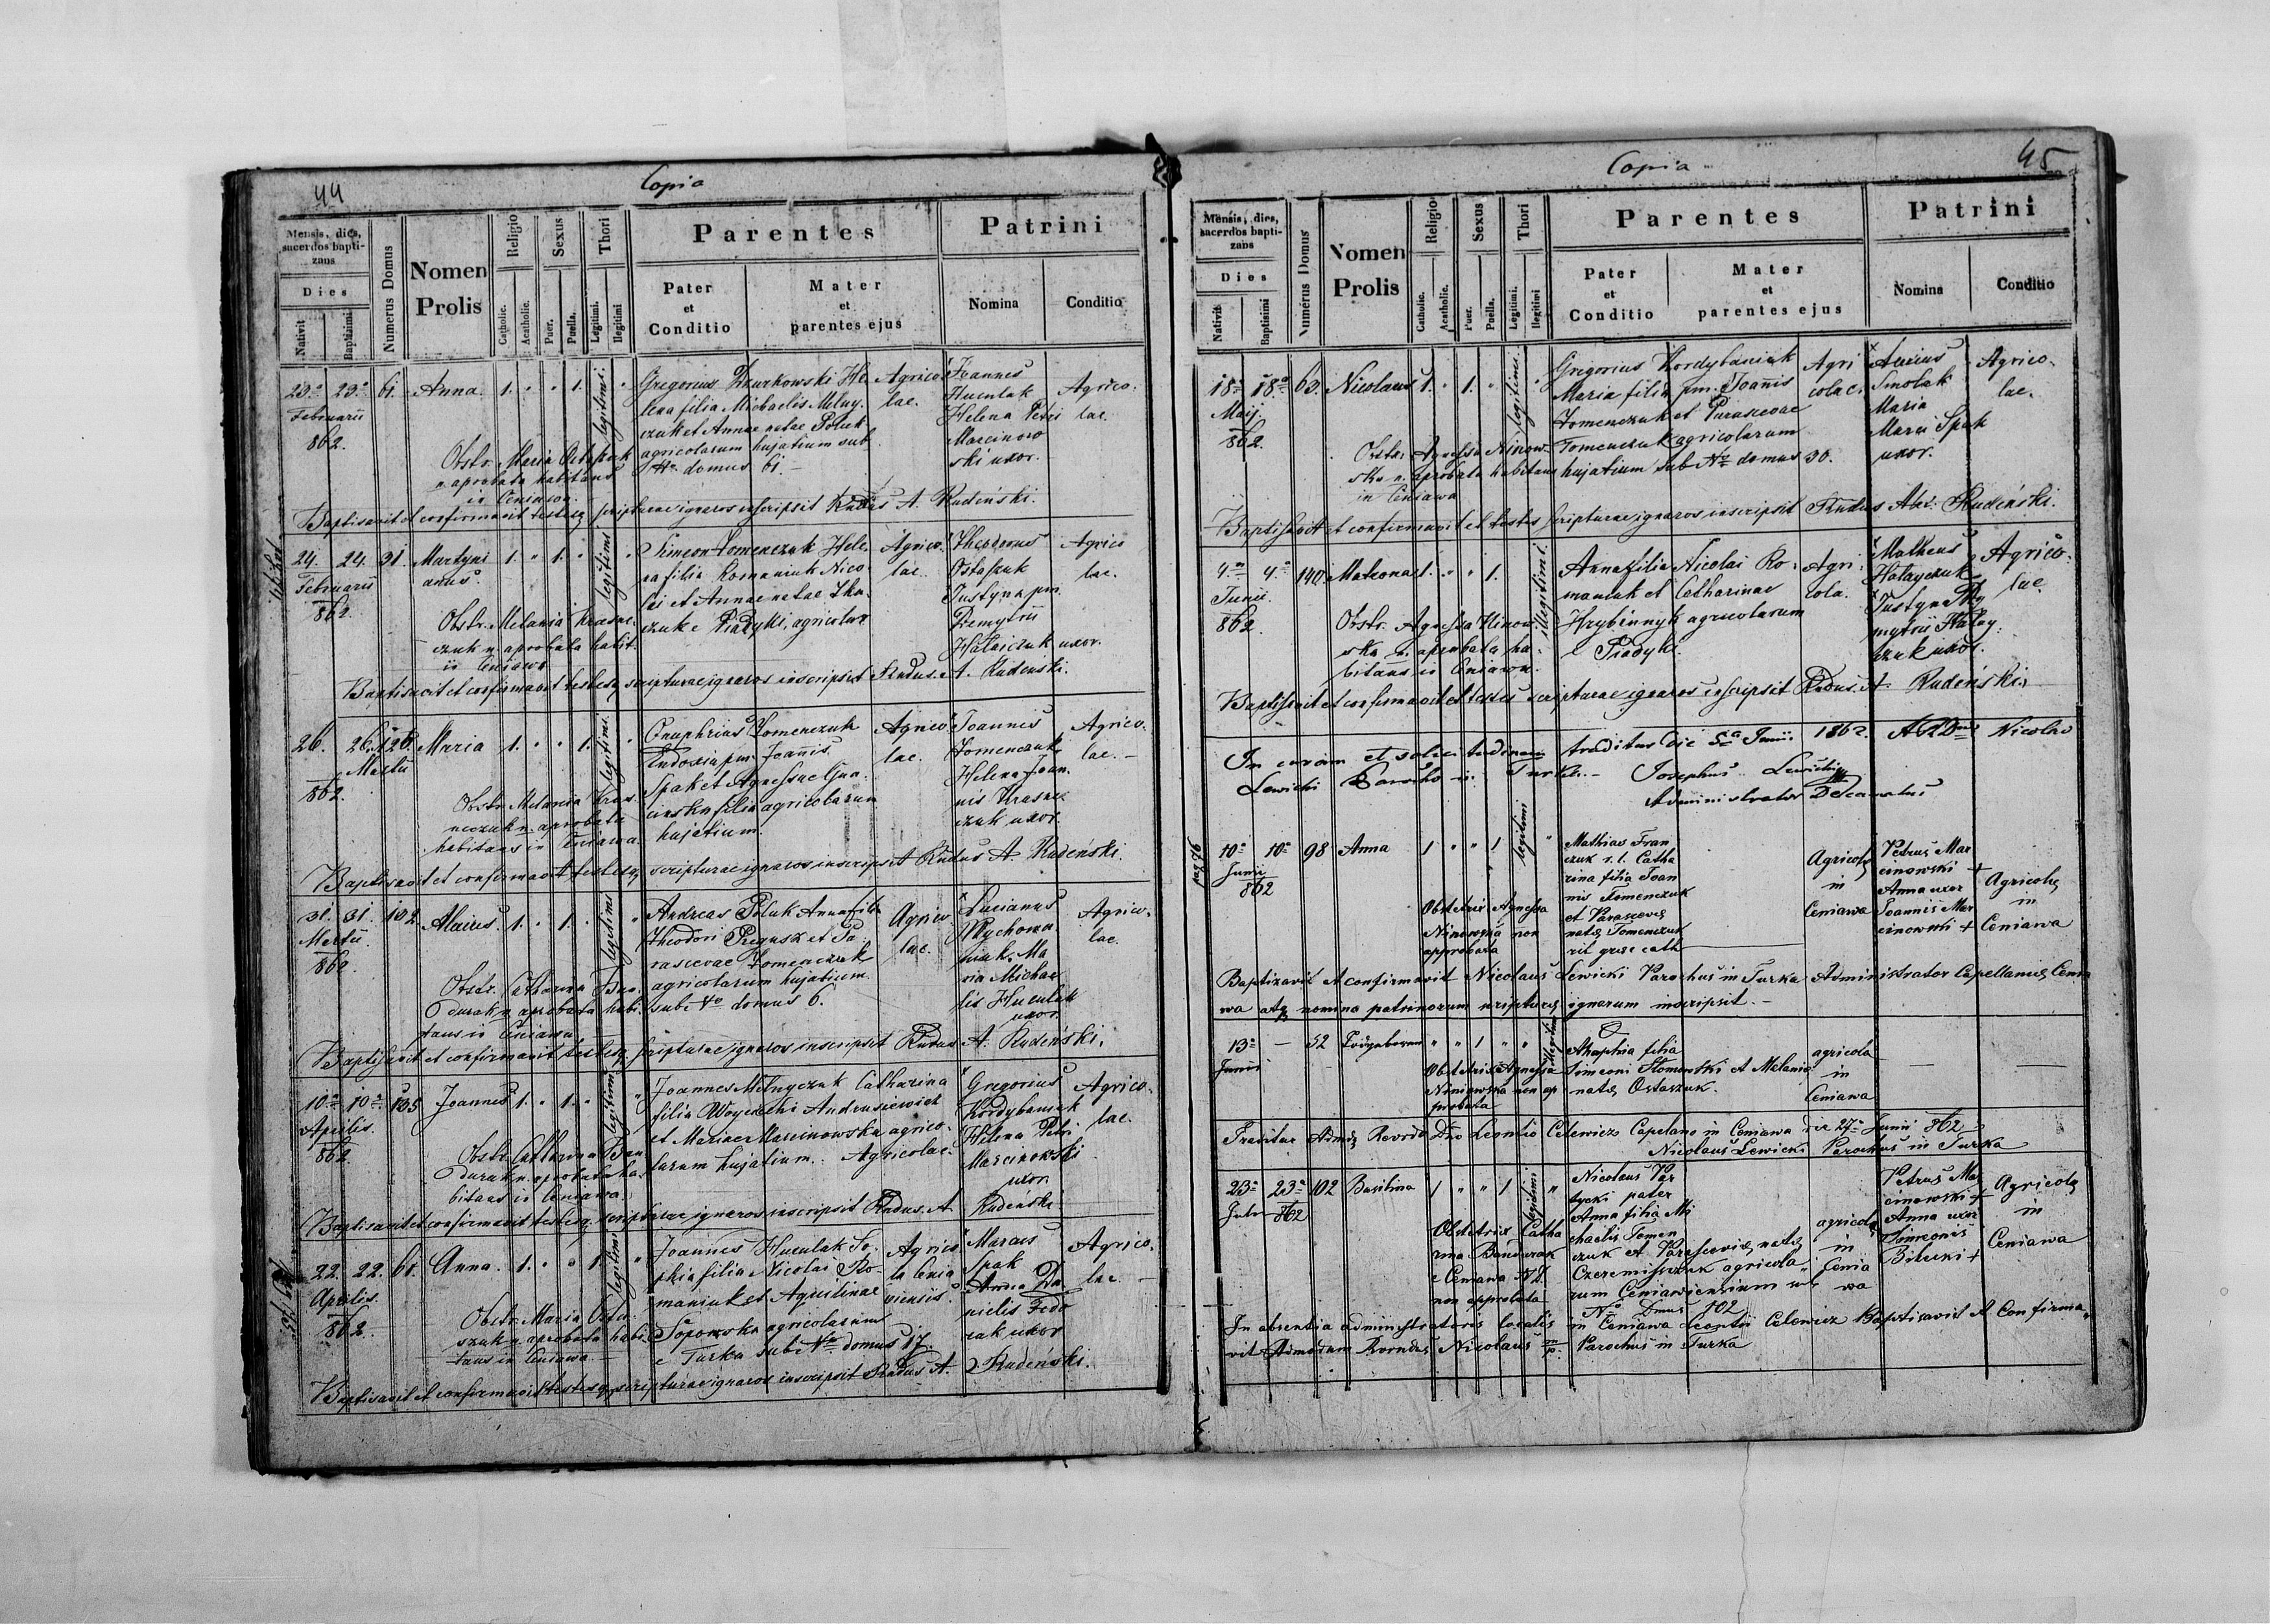 44
Copia
Mensis, dies, sacerdos baptizans
Dies
Nativit.
Baptismi
Numerus Domus
Nomen Prolis
Religio
Catholic.
Acatholic.
Sexus
Puer.
Puella.
Thori
Legitimi.
Illegitimi
Parentes
Pater et Conditio
Mater et parentes ejus
Patrini
Nomina
Conditio
23a 23a 61. Anna. 1. " " 1. legitimi. "
Februarii
862.
Gregorius Dzurkowski He-
lena filia Michaelis Melny-
czuk et Annae natae Poluk
agricolarum hujatium sub
No domus 61.
Agrico-
lae.
Joannes
Huculak
Helena Petri
Marcinow
ski uxor.
Agrico-
lae.
Obstr. Maria Ostapuk
n. aprobata habitans
in Ceniawa.
Baptisavit et confirmavit testesq scripturae ignaros inscripsit Rudus A. Rudeński.
24. 24. 31. Martyni 1. " 1. " legitimi "
anus.
Februarii
862.
Simeon Tomenczuk Hele-
na filia Romaniuk Nico-
lai et Annae natae
czuk e Piadyki, agricolar
Agrico-
lae.
Theodorus
Ostapuk
Justyna pm.
Demytrii
Hataiczuk uxor.
Agrico
lae.
Obstr. Melania
czuk n. aprobata habit.
in Ceniawa
Baptisavit et confirmavit testesq scripturae ignaros inscripsit Rudus A. Rudeński.
26. 26. 126. Maria 1. " " 1. legitimi. "
Martii
862.
Onuphrius Tomenczuk
Eudoxia pm. Joannis
Spak et Agnessae
filia agricolarum
hujatium.
Agrico
lae.
Joannes
Tomenczuk
Helena Joan-
nis Krasne
czuk uxor.
Agrico-
lae.
Obstr. Melania Kras-
neczuk n. aprobata
habitans in Ceniawa
Baptisavit et confirmavit testesq scripturae ignaros inscripsit Rudus A. Rudeński.
31. 31. 102. Alexius. 1. " 1. " legitimi "
Martii
862.
Andreas Poluk Anna filia
Theodori et Pa-
rascevae Tomenczuk
agricolarum hujatium
sub No domus 6.
Agrico
lae.
Lucianus
Ma
ria Michae
lis Huculak
uxor.
Agrico-
lae.
Obstr. Catharina Ban-
durak n. aprobata habi-
tans in Ceniawa
Baptisavit et confirmavit testesq scripturae ignaros inscripsit Rudus A. Rudeński.
10a 10a 135 Joannes 1. " 1. " legitimi "
Aprilis
862
Joannes Melnyczuk Catharina
filia Woyciechi Andrusiewicz
et Mariae Marcinowska agrico-
larum hujatium. Agricolae.
Gregorius
Kordybaniuk
Helena Petri
Marcinowski
uxor.
Agrico-
lae.
Obstr. Catharina Ban
durak n. aprobata ha-
bitans in Ceniawa.
Baptisavit et confirmavit testesq scripturae ignaros inscripsit Rudus A. Rudeński
22. 22. 61. Anna. 1. " " 1. legitimi "
Aprilis.
862.
Joannes Huculak So-
phia filia Nicolai Ro-
maniuk et Aquilinae
agricolarum
e Turka sub No domus 17.
Agrico
la Cenia
viensis.
Marcus
Spak
Anna Da
nielis Fedo
rak uxor
Agrico-
lae.
Obstr. Maria Osta-
szuk n. aprobata habi-
tans in Ceniawa.
Baptisavit et confirmavit testesq scripturae ignaros inscripsit Rudus A. Rudeński.
Copia
45
Mensis, dies, sacerdos baptizans
Dies
Nativit.
Baptismi
Numerus Domus
Nomen Prolis
Religio
Catholic.
Acatholic.
Sexus
Puer.
Puella.
Thori
Legitimi.
Illegitimi
Parentes
Pater et Conditio
Mater et parentes ejus
Patrini
Nomina
Conditio
18a 18a 63. Nicolaus 1. " 1. " legitimi. "
Maij.
862
Gregorius Kordybaniuk
Maria filia pm. Joannis
Tomenczuk et Parascevae
Tomenczuk agricolarum
hujatium sub No domus 30.
Agri
colae.
Alexius
Smolak
Maria
Marci Spak
uxor.
Agrico-
lae.
Obstr. Agnessa Ninow-
ska n. aprobata habitans
in Ceniawa
Baptisavit et confirmavit et testes scripturae ignaros inscripsit Rudus Alex: Rudeński.
4a 4a 140 Matrona 1. " " 1. illegitimi.
Junii.
862.
Anna filia Nicolai Ro-
maniuk et Catharinae
Hrybinnyk agricolarum
e Piadyki.
Agri
cola.
Matheus
Hatayczuk
Justyna De
mytrii Hatay-
czuk uxor.
Agrico-
lae.
Obstr. Agnessa Ninow-
ska n. aprobata ha-
bitans in Ceniawa.
Baptisavit et confirmavit et testes scripturae ignaros inscripsit Rudus A. Rudeński.
In curam et solicitudinem traditus die 5a Junii 1862. A R Dno Nicolao
Lewicki Parocho in Turka. Josephus Lewicki
Administrator Decanatus
pag 96
10a 10a 98 Anna 1 " " 1 legitimi "
Junii
862
Mathias Fran
czuk r. l. Catha
rina filia Joan
nis Tomenczuk
et Parascevę
natę Tomenczuk
rit graec cath
Agricolę
in
Ceniawa
Petrus Mar
cinowski +
Anna uxor
Joannis Mar
cinowski +
Agricolę
in
Ceniawa
Obstetrix Agnessa
Ninowska non
approbata
Baptizavit et confirmavit Nicolaus Lewicki Parochus in Turka Administrator Capellanię Cenia
wa atq nomina patrinorum scripturę ignarum inscripsit.
13a — 52 " " 1 " " illegitimi
Junii
Ahaphia filia
Simeoni Slomowski et Melanię
natę Ostaszuk.
agricola
in
Ceniawa
Obstetrix Agnessa
Niniowska non ap
probata
Traditur Admdę Revrdo Dno Leontio Celewicz Capelano in Ceniawa die 27a Junii 862
Nicolaus Lewicki Parochus in Turka
23a 23a 102 Basilina 1 " " 1 legitimi "
862
Nicolaus Par
tycki pater
Anna filia Mi
chaelis Tomen
czuk et Parascevię natę
Czeremiszczuk agricola
rum Ceniawiensium sub
No Domus 102
agricolę
in
Cenia
wa
Petrus Mar
cinowski +
Anna uxor
Simeonis
Bilecki +
Agricolę
in
Ceniawa
Obstetrix Catha
rina Bandurak
e Ceniawa
non approbata
In absentia administratoris localis in Ceniawa Leontii Celewicz Baptisavit et Confirma-
vit Admodum Rvrndus Nicolaus Parochus in Turka